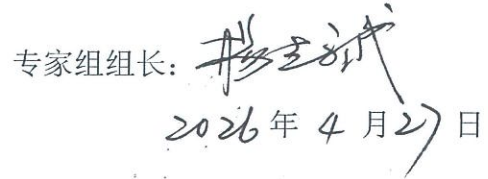 专家组组长：
2026年4月27日